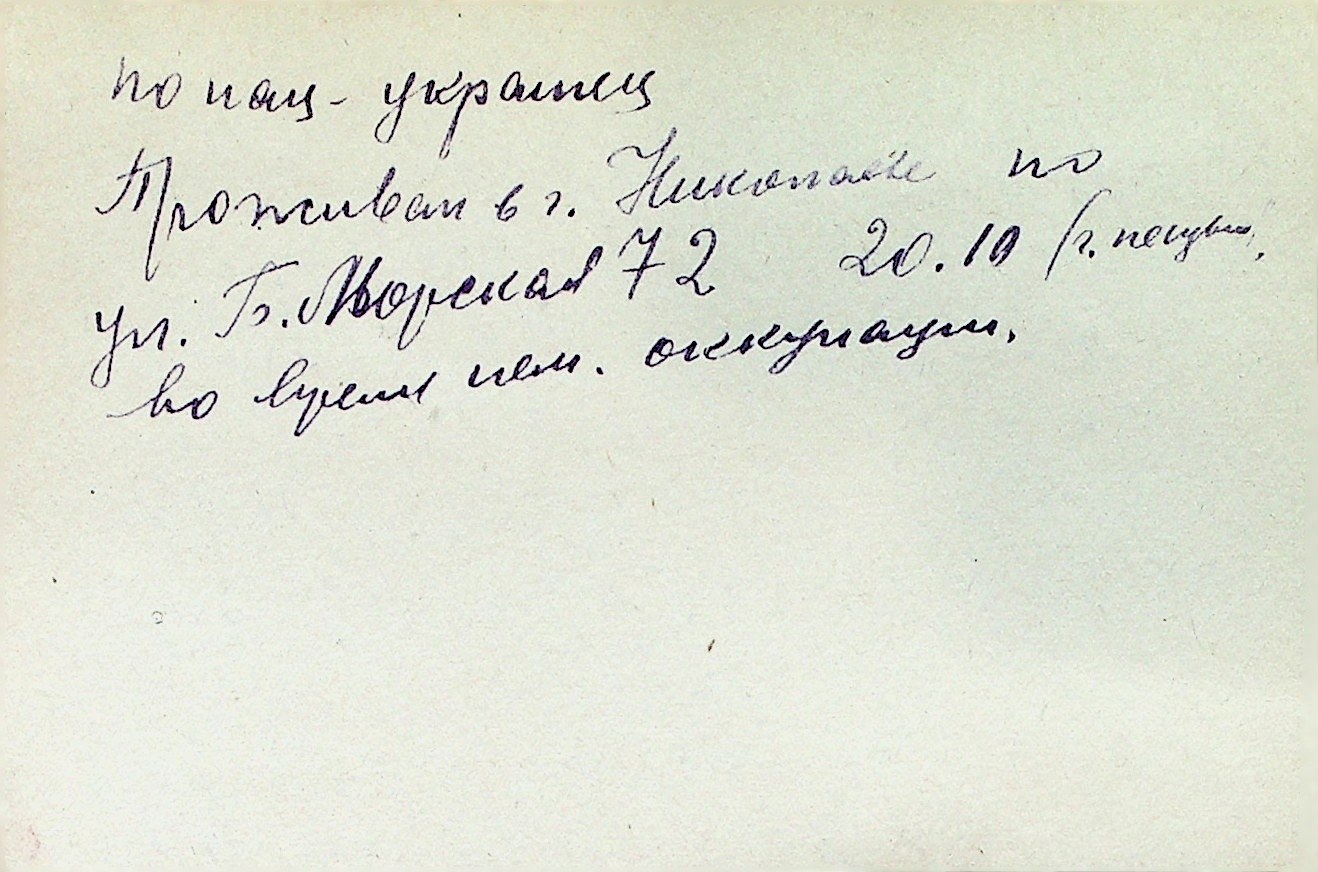 по нац- украинец
Проживал в г. Николаеве по
ул. Б. Морская 72 20.10
во время нем. оккупации.